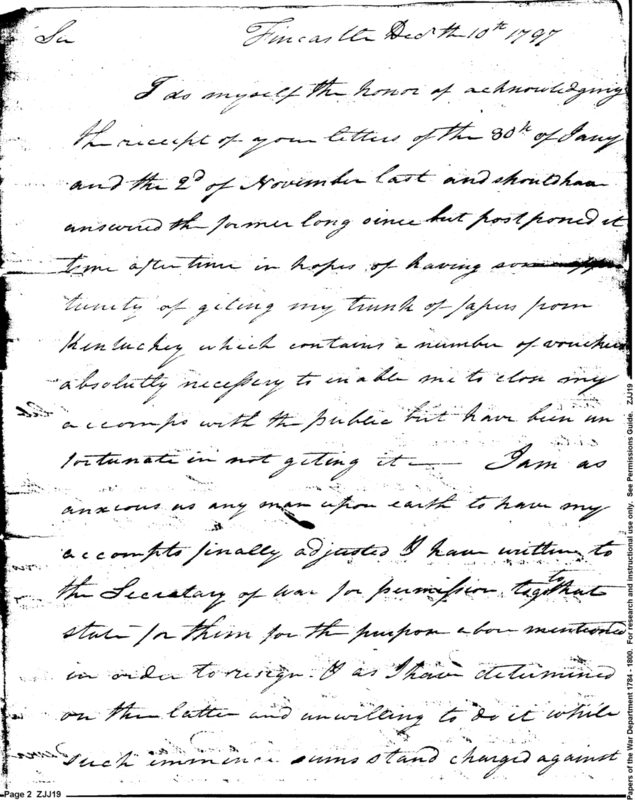 Sir Fincastle Decr th 10th 1797
I do myself the honor of acknowledging
the receipt of your letters of the 30th of Jany
and the 2d of November last and should have
answered the former long since but postponed it
time after time in hopes of having some oppor
tunity of geting my trunk of papers from
Kentuckey which contains a number of vouchers
absolutly necessery to inable me to close my
accomps with the public but have been un
fortunate in not geting it — I am as
anxious as any man upon earth to have my
accompts finally adjusted I have written to
the Secretary of War for permission to go to that
state for them for the purpose above mentioned
in order to resign. & as I have determined
on the latter and unwilling to do it while
such immence sums stand charged against
Page 2 ZJJ19
Papers of the War Department 1784 - 1800. For research and instructional use only. See Permissions Guide. ZJJ19